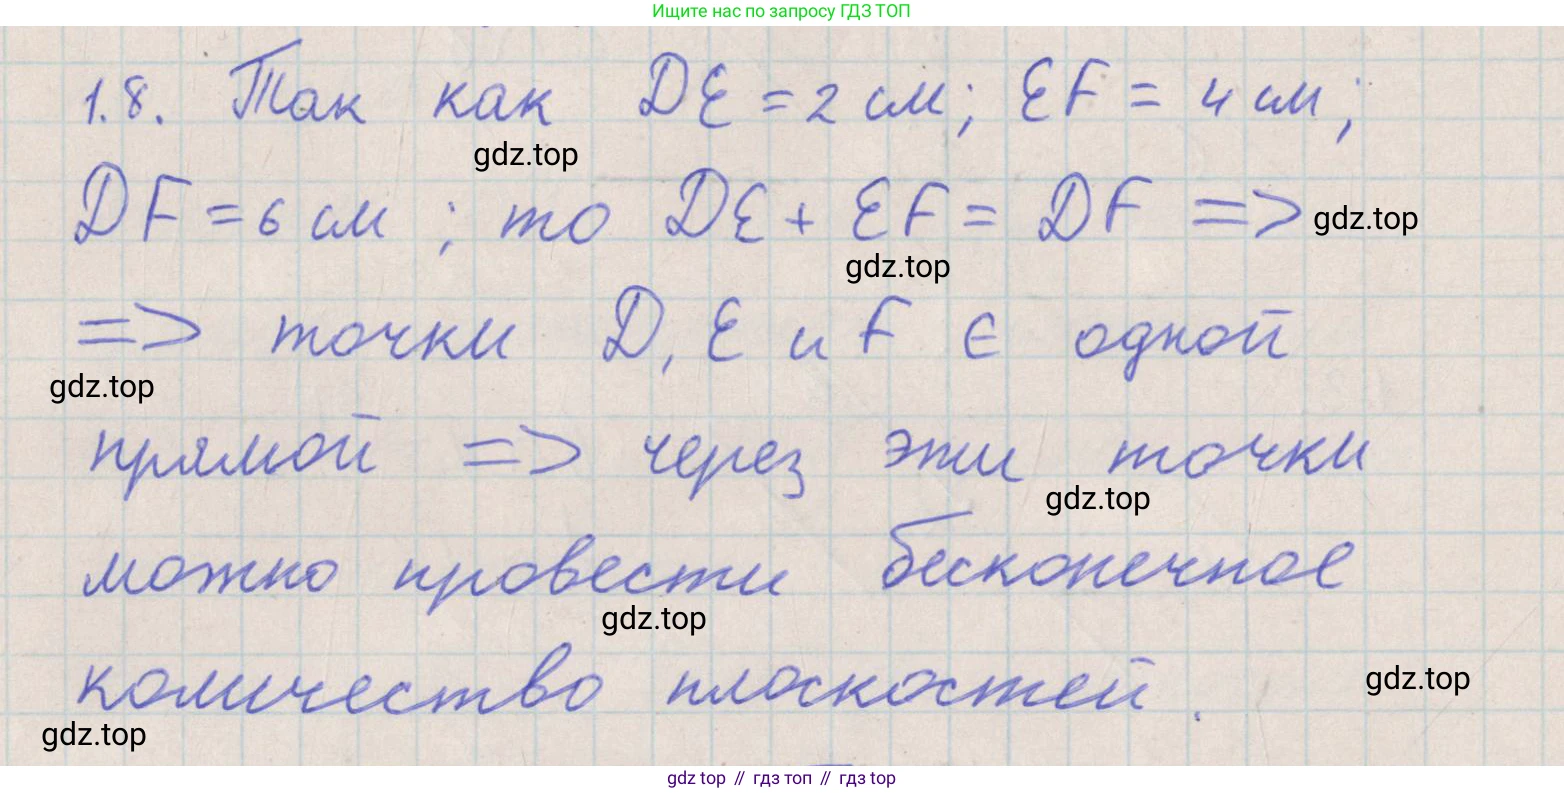 Ищите нас по запросу ГДЗ ТОП
1.8. Так как DE = 2 см; EF = 4 см;
gdz.top
DF = 6 см; то DE + EF = DF =>
gdz.top
gdz.top
=> точки D, E и F ∈ одной
gdz.top
прямой => через эти точки
gdz.top
можно провести бесконечное
gdz.top
количество плоскостей.
gdz.top
gdz.top
gdz top // гдз топ // гдз top